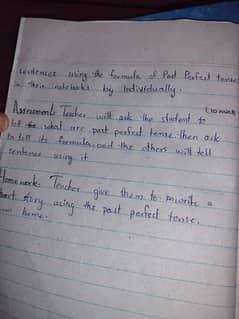 sentences using the formula of Past Perfect tense
in their notebooks by individually.
(10 mint)
Assessment: Teacher will ask the student to
tell what are past perfect tense then ask
to tell its formula and the others will tell
sentence using it
Homework: Teacher give them to rewrite a
short story using the past perfect tense.
home.